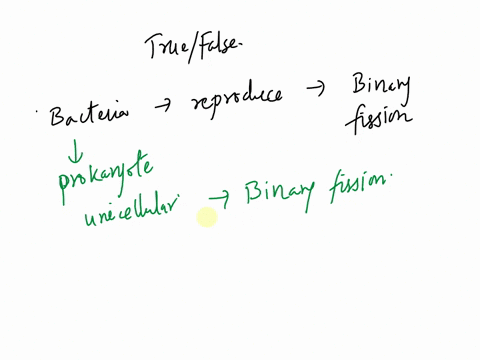 True/False.
Bacteria → reproduce → Binary fission
↓
prokaryote
unicellular → Binary fission.